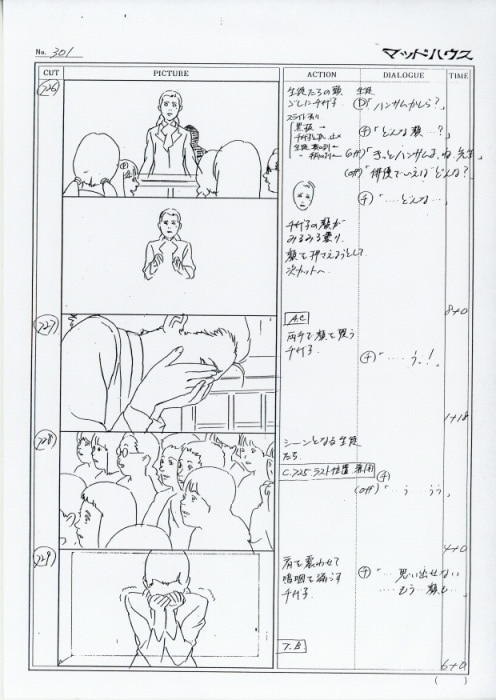 No. 301
マッドハウス
CUT PICTURE ACTION DIALOGUE TIME
726
生徒たちの頭
ごしにチヨ子
スライド有り
生徒
「ハンサムかしら?」
チ「どんな顔…?」
off「きっとハンサムよ、ね、先生」
(off)「俳優でいえばどんな?」
チ「……どんな…」
チヨ子の顔が
みるみる曇り
顔を押さえようとして
次カットへ
8+0
727
A.C
両手で顔を覆う
チヨ子
チ「……う、!」
1+18
728
シーンとなる生徒
たち
C.725 ラスト位置 兼用
チ
(off)「う うう」
4+0
729
肩を震わせて
嗚咽を漏らす
チヨ子
チ「…思い出せない
……もう…顔も…」
T.B
6+0
( )